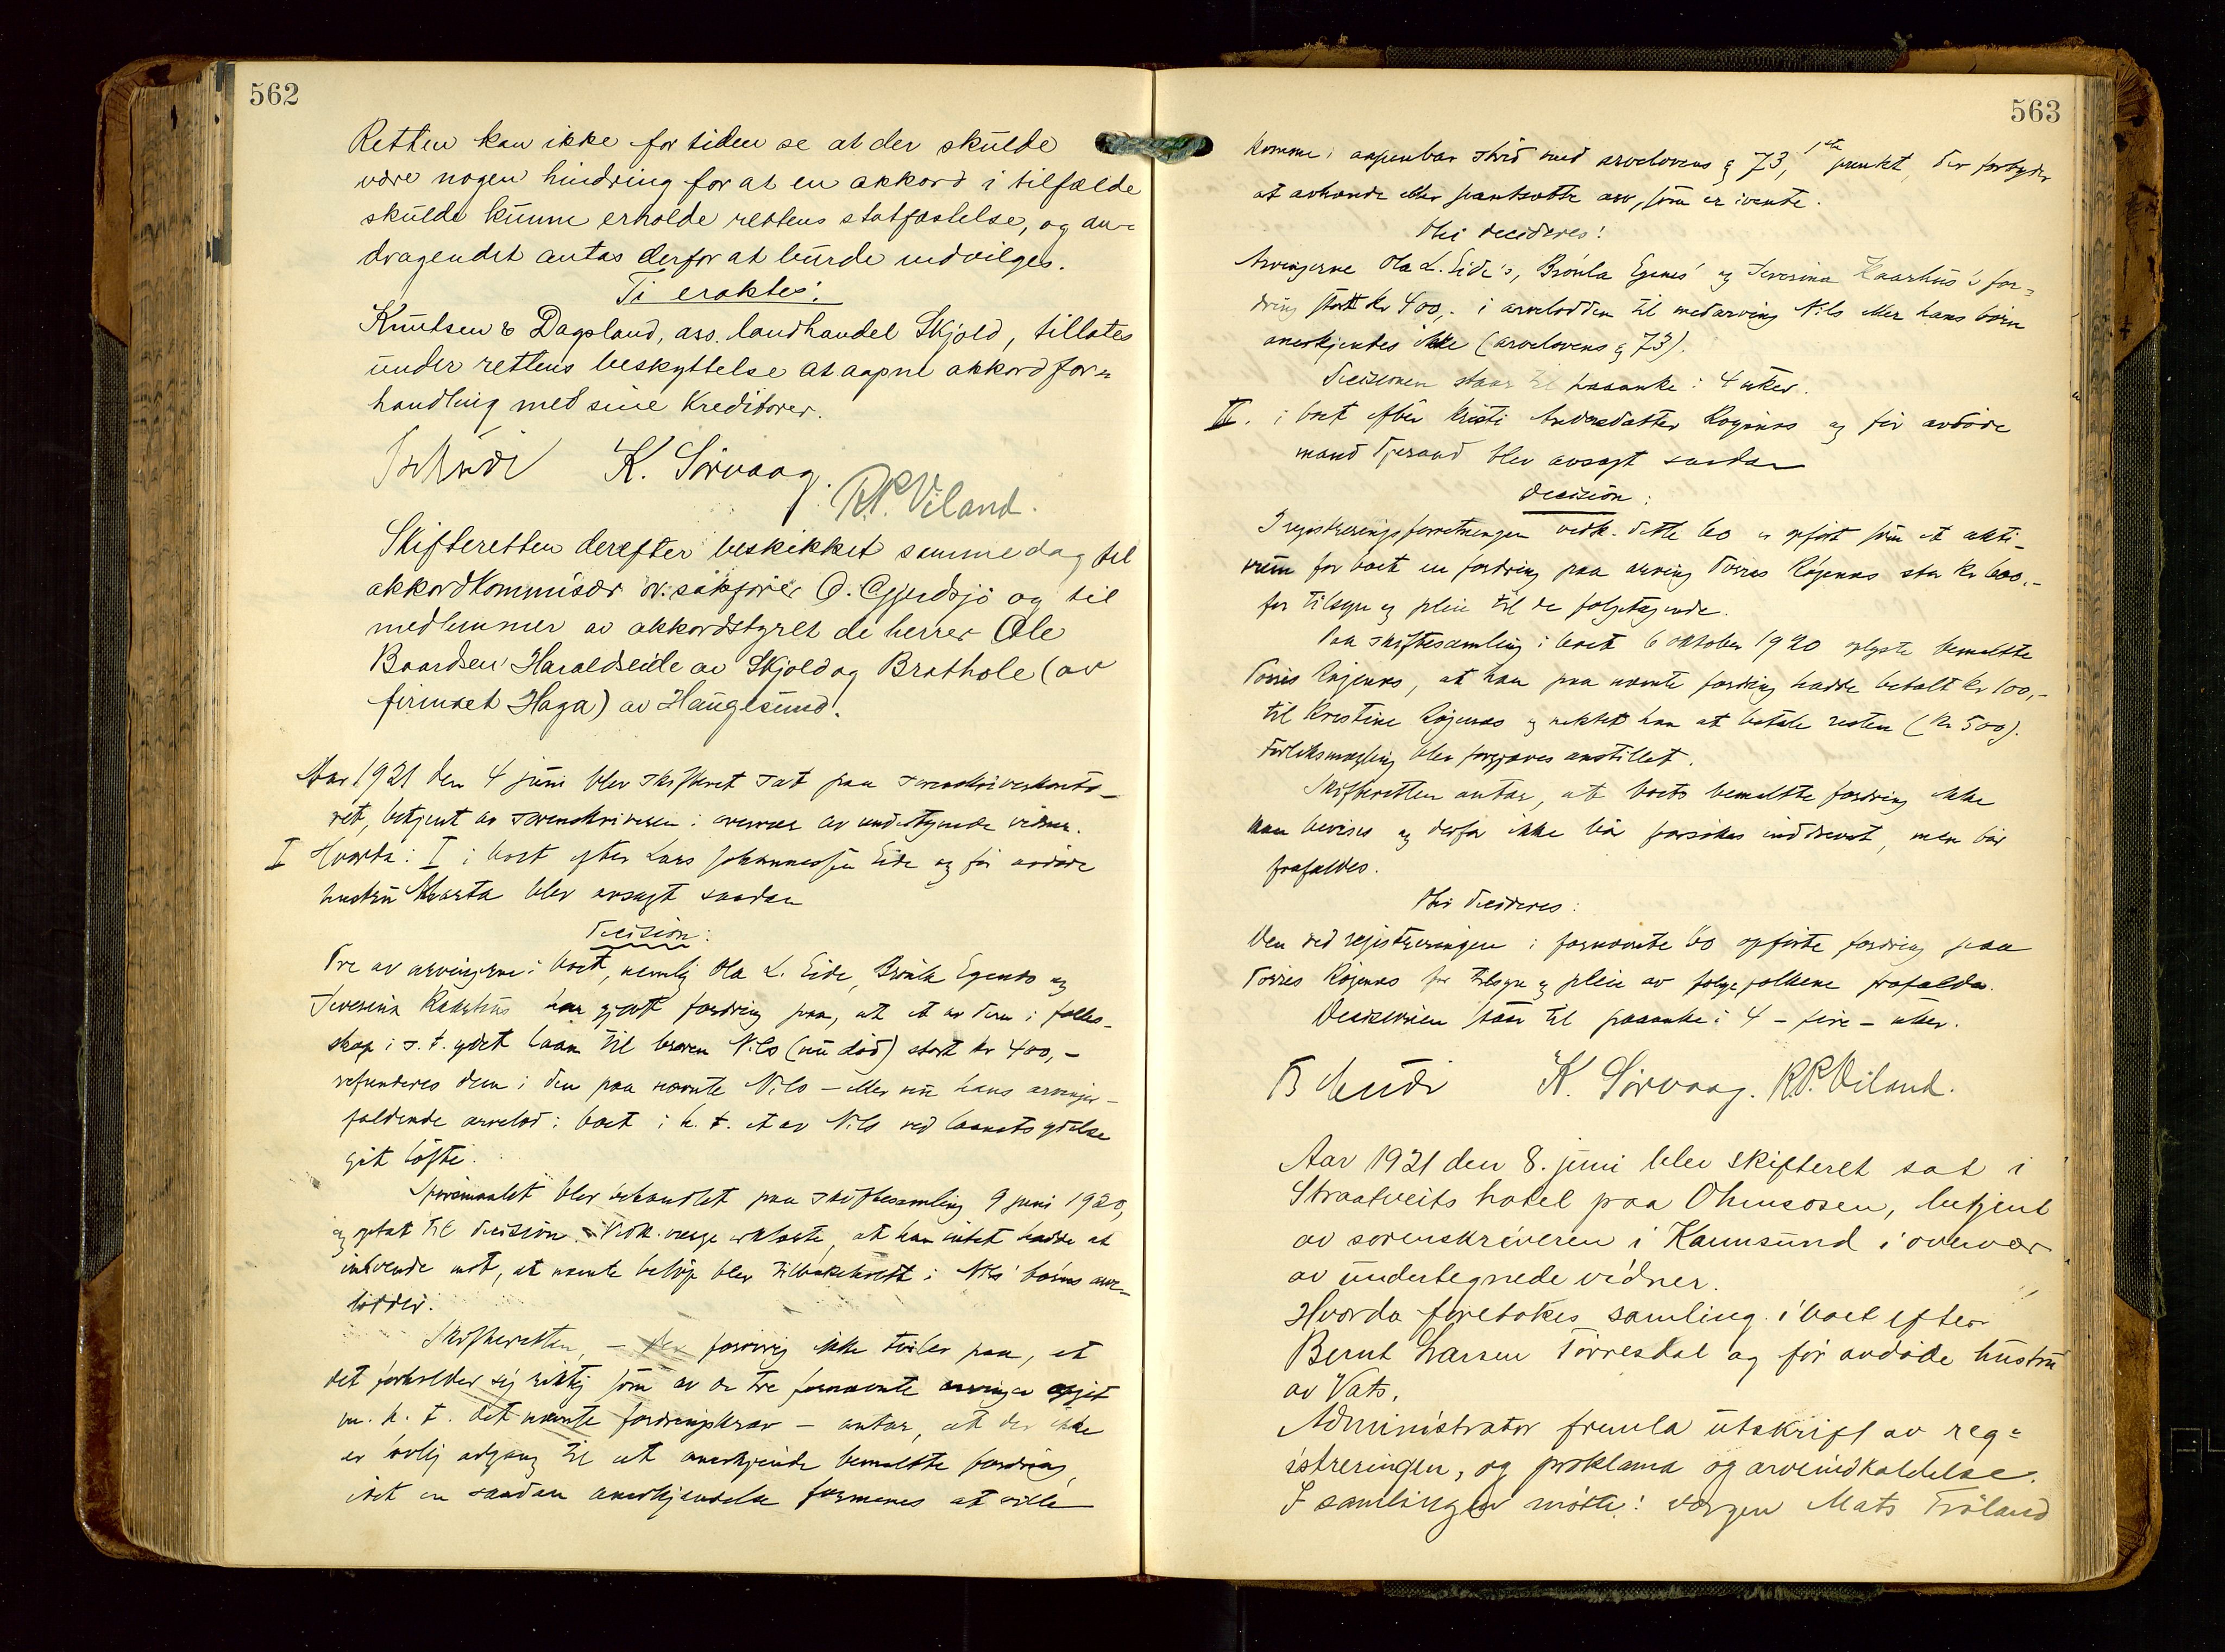 562
Retten kan ikke for tiden se at der skulde
være nogen hindring for at en akkord i tilfælde
skulde kunne erholde rettens statfæstelse, og an-
dragendet antas derfor at burde indvilges.
Ti eraktes:
Knutsen & Dagsland, ass. landhandel Skjold, tillates
under rettens beskyttelse at aapne akkordfor-
handling med sine kreditorer.
K. Sørvaag. R.P. Viland.
Skifteretten derefter beskikket samme dag til
akkordkommisær o.r.sakfører O. Gjerdsjø og til
medlemmer av akkordstyret de herrer Ole
Baardsen Haraldseide av Skjold og Brathole (av
firmaet Haga) av Haugesund.
Aar 1921 den 4 juni blev skifteret sat paa sorenskriverkonto-
ret, betjent av sorenskriveren i overvær av undertegnede vidner.
I Hvorda: I i boet efter Lars Johannessen Eide og før avdøde
hustru Marta blev avsagt saadan
Decision:
Tre av arvingerne i boet, nemlig Ola L. Eide, Brønla Egenes og
Severina Haarhus har gjort fordring paa, at et av dem i fælles-
skap i s. t. ydet laan til broren Nils (nu død) stort kr 400,-
refunderes dem i den paa nævnte Nils - eller nu hans arvinger -
faldende arvelod i boet i h. t. et av Nils ved laanets ydelse
git løfte.
Spørsmaalet blev behandlet paa skiftesamling 9 juni 1920,
og optat til decision. Vedk. verge erklærte, at han intet hadde at
indvende mot, at nævnte beløp blev tilbakeholdt i Nils' børns arve-
lodder.
Skifteretten, - der forøvrig ikke tviler paa, at
det forholder sig riktig som av de tre fornævnte arvinger opgit
m. h. t. det nævnte fordringskrav - antar, at der ikke
er lovlig adgang til at anerkjende bemeldte fordring,
idet en saadan anerkjendelse formenes at ville
563
komme i aapenbar strid med arvelovens § 73, 1ste punkt, der forbyder
at avhænde eller pantsætte arv, som er ivente.
Thi decideres:
Arvingerne Ola L. Eide's, Brønla Egenes' og Severina Haarhus's for-
dring stort kr 400,- i arvelodden til medarving Nils eller hans børn
anerkjendes ikke (arvelovens § 73).
Decisionen staar til paaanke i 4 uker.
II. i boet efter Kristi Andersdatter Røgenes og før avdøde
mand Tjerand blev avsagt saadan
Decision:
I registreringsforretningen vedk. dette bo er opført som et akti-
vum for boet en fordring paa arving Torres Røgenes stor kr 600,-
for tilsyn og pleie til de
Paa skiftesamling i boet 6 oktober 1920 oplyste bemeldte
Torres Røgenes, at han paa nævnte fordring hadde betalt kr 100,-
til Kristine Røgenes og nektet han at betale resten (kr 500).
Forliksmægling blev forgjæves anstillet.
Skifteretten antar, at boets bemeldte fordring ikke
kan bevises og derfor ikke bør forsøkes inddrevet, men bør
frafaldes.
Thi decideres:
Den ved registreringen i fornævnte bo opførte fordring paa
Torres Røgenes for tilsyn og pleie av følgefolkene frafaldes.
Decisionen staar til paaanke i 4 - fire - uker.
K. Sørvaag. R.P. Viland.
Aar 1921 den 8. juni blev skifteret sat i
Straatveits hotel paa Ølensosen, betjent
av sorenskriveren i Karmsund i overvær
av undertegnede vidner.
Hvorda foretokes samling i boet efter
Bernt Larsen Tørresdal og før avdøde hustru
av Vats.
Administrator fremla utskrift av reg-
istreringen, og proklama og arveindkaldelse.
I samlingen møtte: vergen Mats Frøland